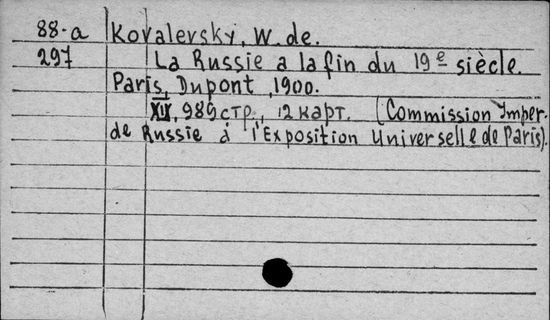 88-a Kovalevsky, W. de.
297 La Russie a la fin du 19e siècle.
Paris, Dupont, 1900.
XIX, 989 стр., 12 карт. (Commission Imper.
de Russie à l'Exposition Universelle de Paris).